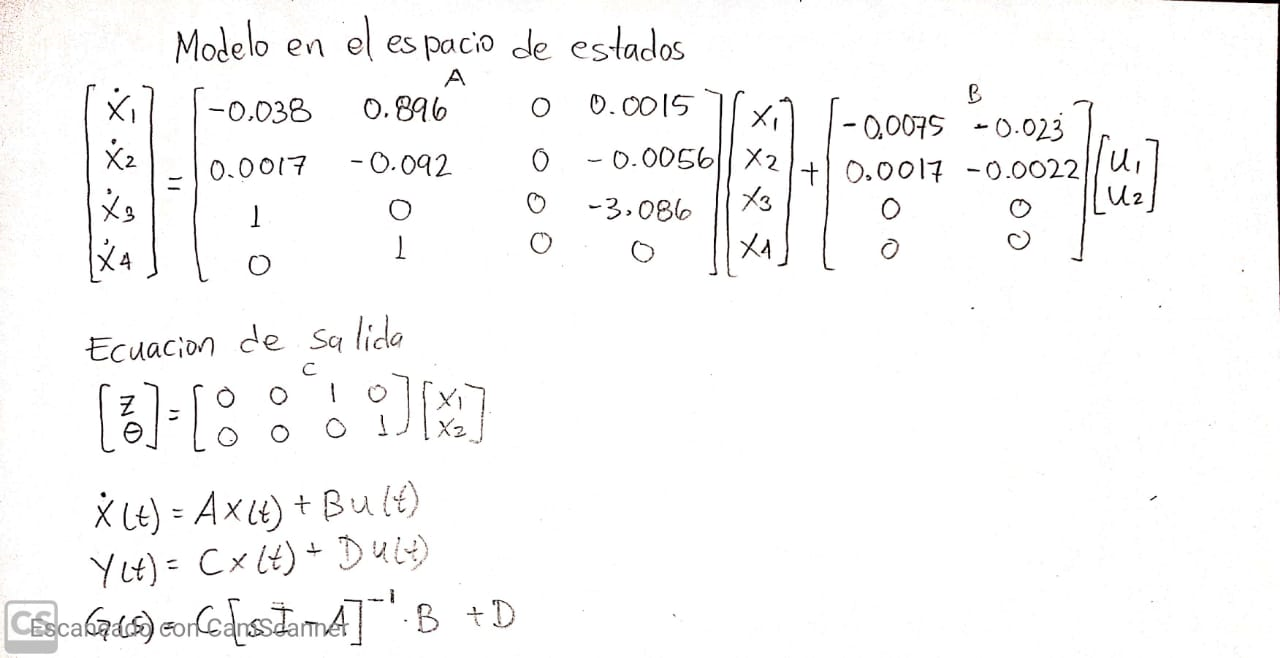 Modelo en el espacio de estados
A B
[ẋ1 ẋ2 ẋ3 ẋ4] = [-0.038 0.896 0 0.0015
0.0017 -0.092 0 -0.0056
1 0 0 -3.086
0 1 0 0] [x1 x2 x3 x4] + [-0.0075 -0.023
0.0017 -0.0022
0 0
0 0] [u1 u2]
Ecuacion de salida
C
[z θ] = [0 0 1 0
0 0 0 1] [x1 x2]
ẋ(t) = Ax(t) + Bu(t)
Y(t) = Cx(t) + Du(t)
G(s) = C[sI-A]⁻¹·B + D
CS Escaneado con CamScanner